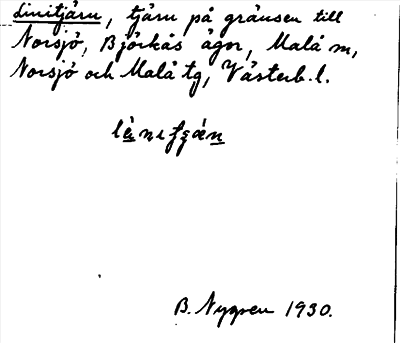 Linitjärn, tjärn på gränsen till
Norsjö, Björkås ägor, Malå sn,
Norsjö och Malå tg, Västerb. l.
B. Nygren 1930.